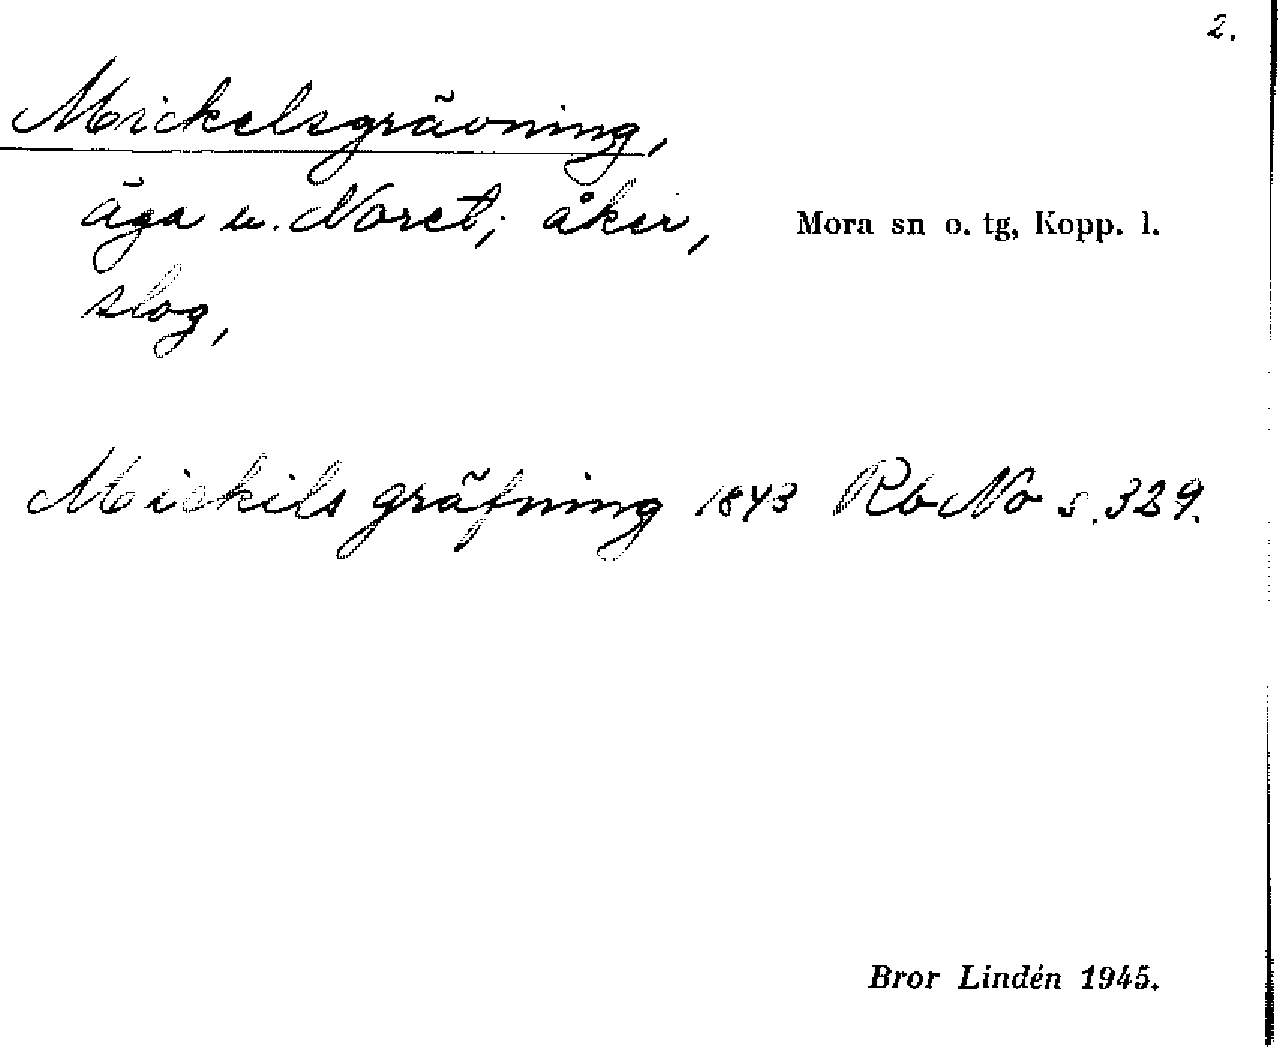 2.
Mickelsgrävning,
äga u. Noret; åker, Mora sn o. tg, Kopp. l.
slog,
Mickils gräfning 1843 Rb No s. 329.
Bror Lindén 1945.